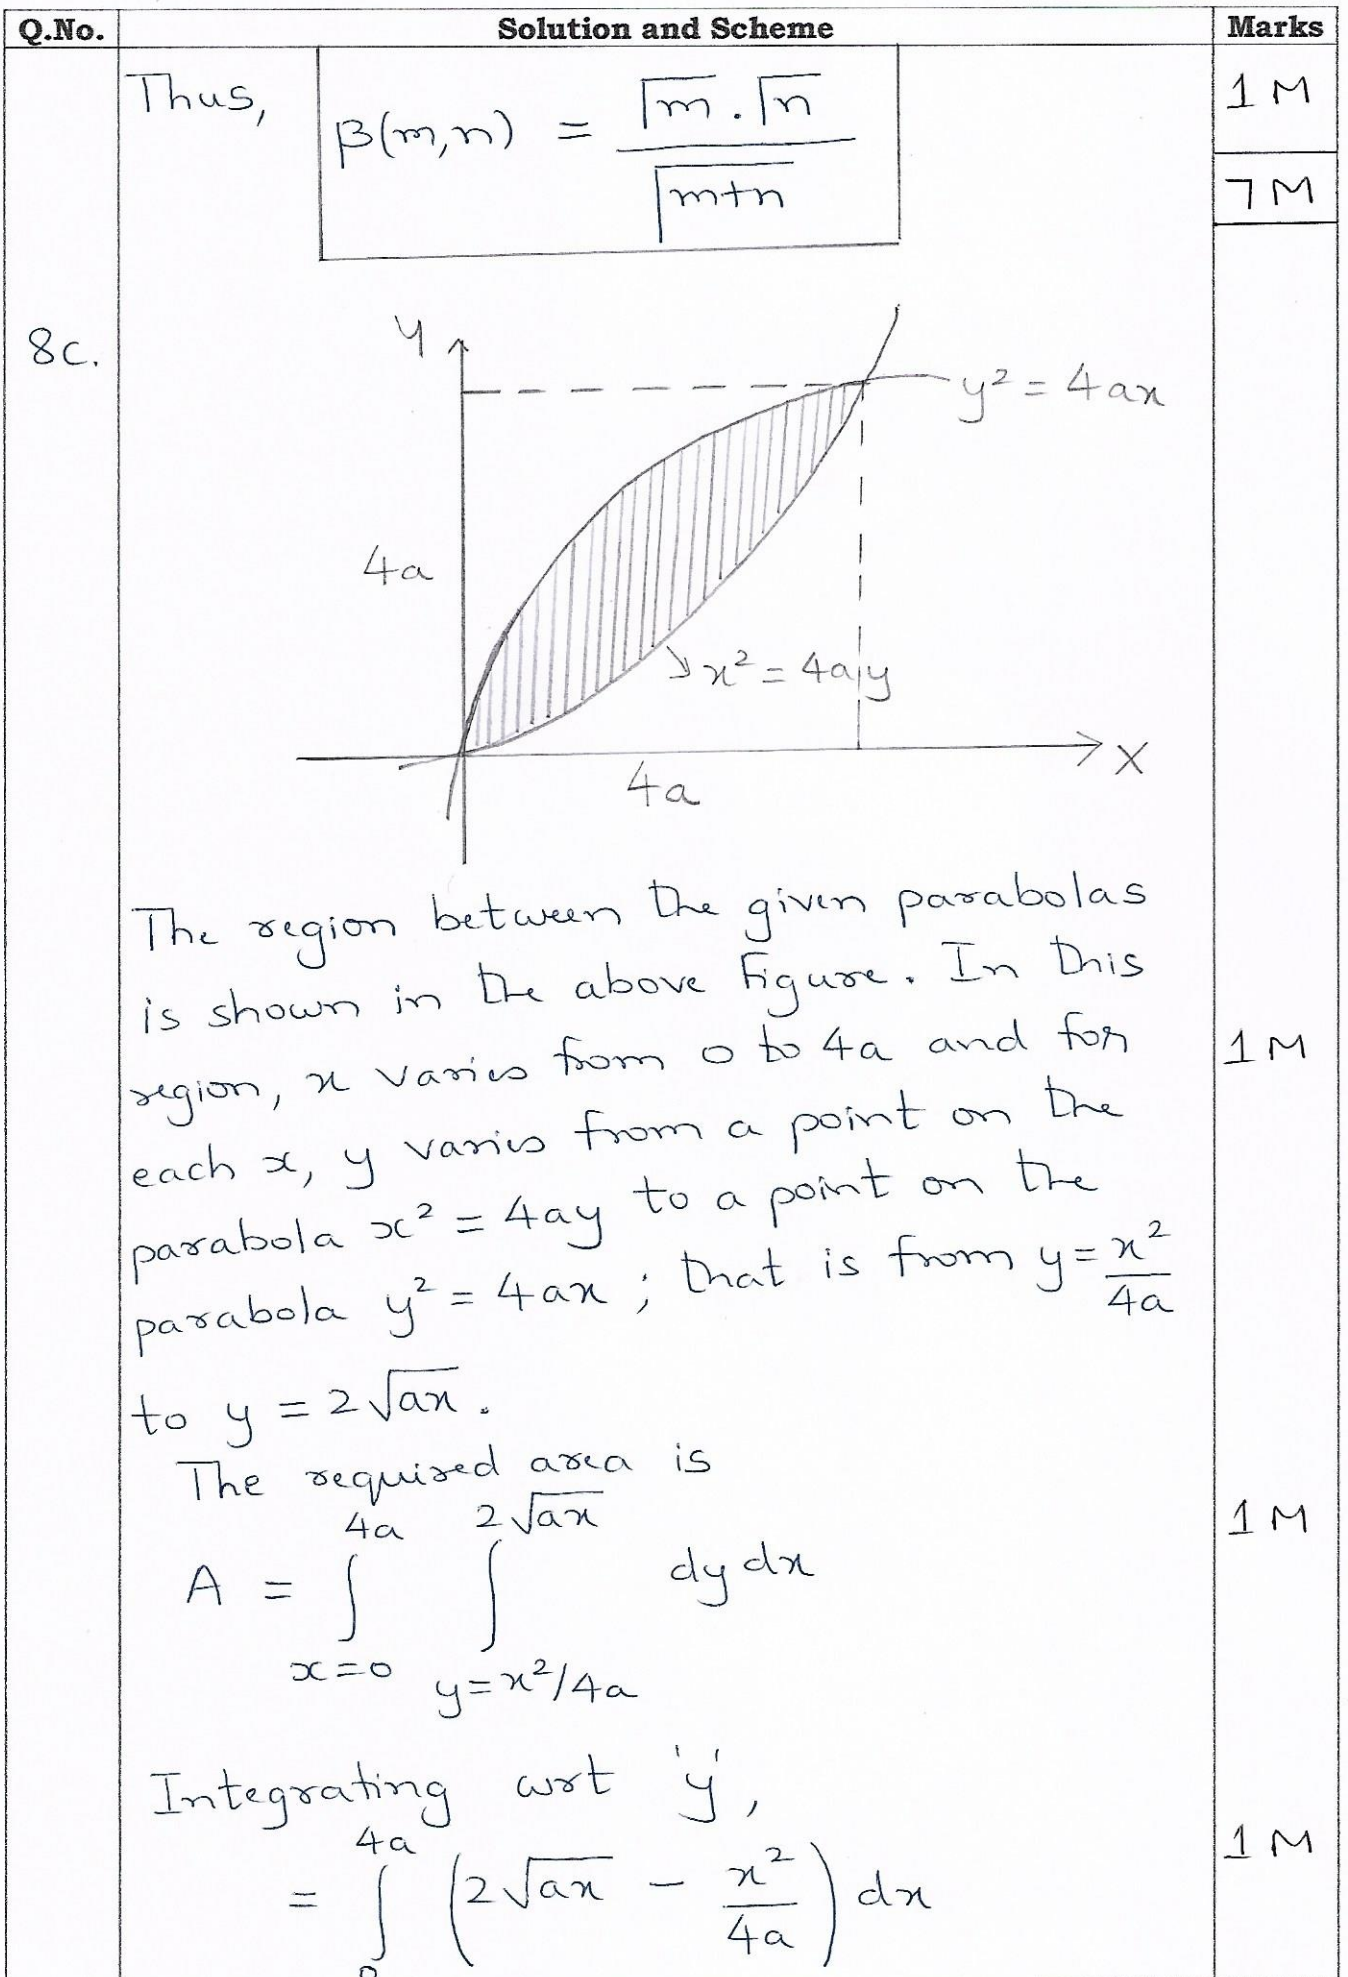 Q.No. Solution and Scheme Marks
Thus, β(m,n) = Γm . Γn / Γm+n 1 M
7 M
8c.
Y
y² = 4ax
4a
x² = 4ay
X
4a
The region between the given parabolas
is shown in the above figure. In this
region, x varies from 0 to 4a and for 1 M
each x, y varies from a point on the
parabola x² = 4ay to a point on the
parabola y² = 4ax ; that is from y = x²/4a
to y = 2√ax .
The required area is
A = ∫_{x=0}^{4a} ∫_{y=x²/4a}^{2√ax} dy dx 1 M
Integrating wrt 'y',
= ∫_0^{4a} (2√ax - x²/4a) dx 1 M